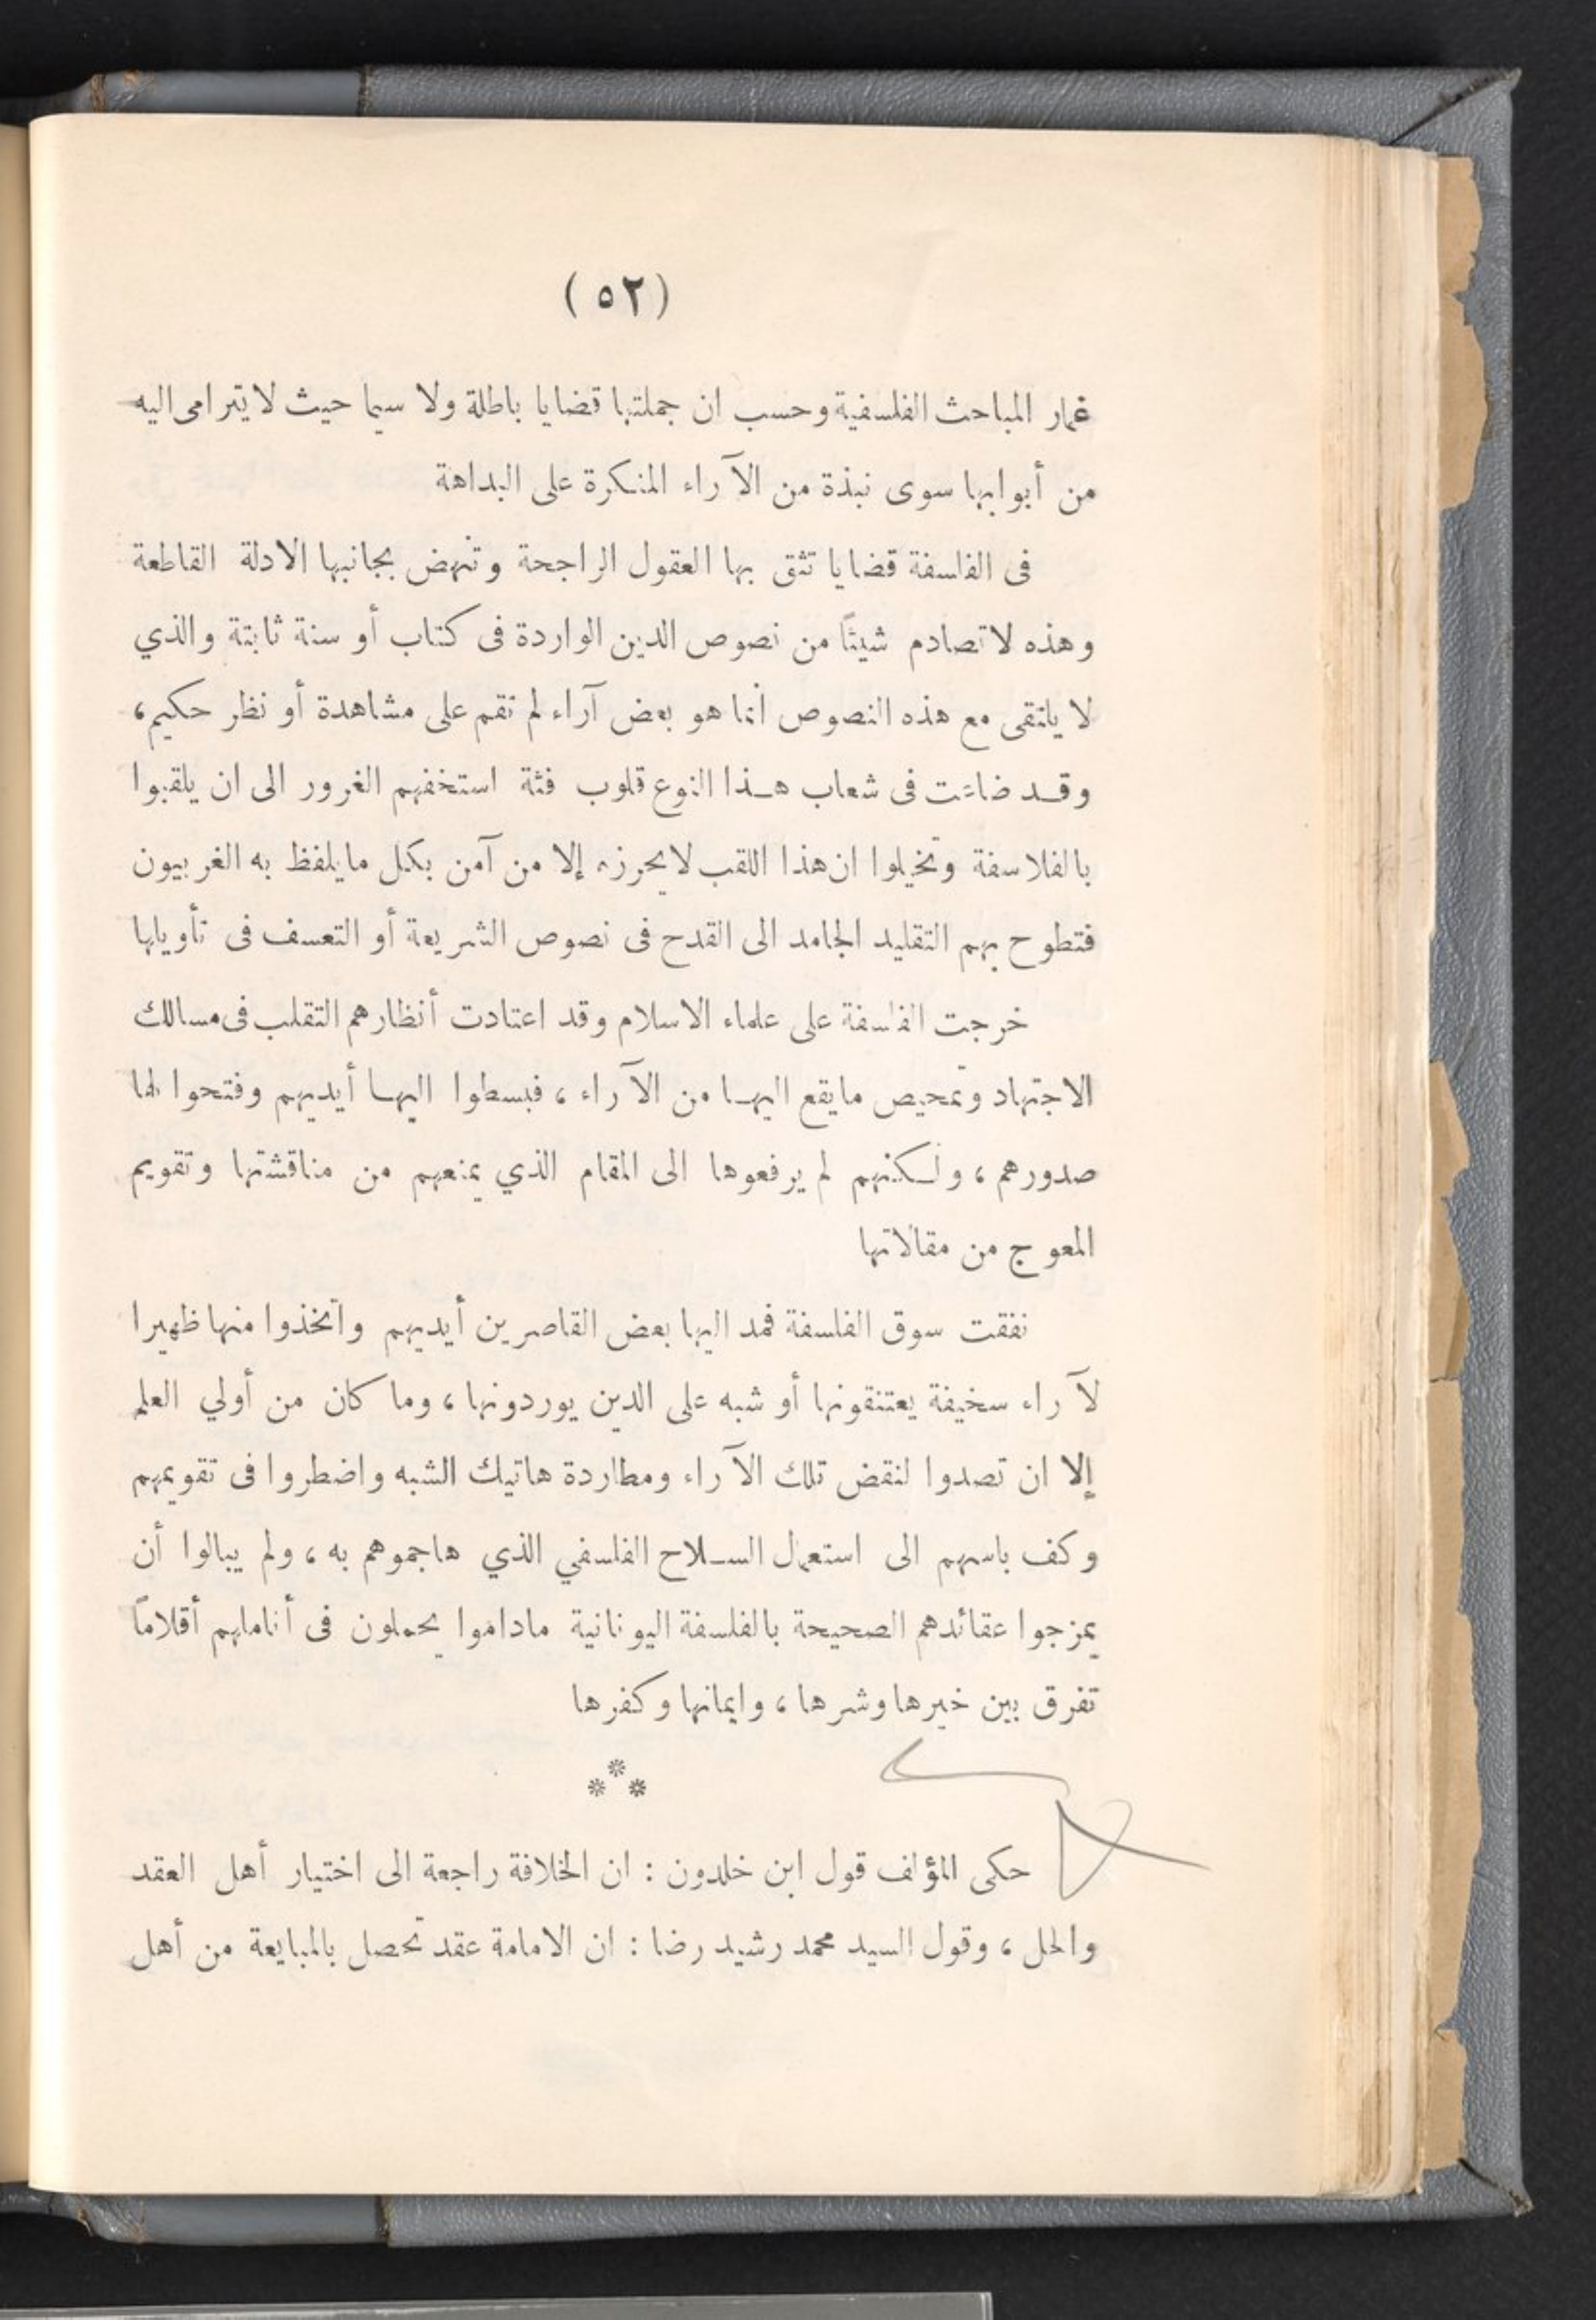 (٥٢)
غمار المباحث الفلسفية وحسب ان جملتها قضايا باطلة ولا سيما حيث لا يترامى اليه
من أبوابها سوى نبذة من الآراء المنكرة على البداهة
في الفلسفة قضايا تثق بها العقول الراجحة وتنهض بجانبها الادلة القاطعة
وهذه لا تصادم شيئًا من نصوص الدين الواردة في كتاب أو سنة ثابتة والذي
لا يلتقى مع هذه النصوص انما هو بعض آراء لم تقم على مشاهدة أو نظر حكيم،
وقد ضاعت في شعاب هذا النوع قلوب فئة استخفهم الغرور الى ان يلقبوا
بالفلاسفة وتخيلوا ان هذا اللقب لا يحرزه إلا من آمن بكل ما يلفظ به الغربيون
فتطوح بهم التقليد الجامد الى القدح في نصوص الشريعة أو التعسف في تأويلها
خرجت الفلسفة على علماء الاسلام وقد اعتادت أنظارهم التقلب في مسالك
الاجتهاد وتمحيص ما يقع اليها من الآراء، فبسطوا اليها أيديهم وفتحوا لها
صدورهم، ولكنهم لم يرفعوها الى المقام الذي يمنعهم من مناقشتها وتقويم
المعوج من مقالاتها
نفقت سوق الفلسفة فمد اليها بعض القاصرين أيديهم واتخذوا منها ظهيرا
لآراء سخيفة يعتنقونها أو شبه على الدين يوردونها، وما كان من أولي العلم
إلا ان تصدوا لنقض تلك الآراء ومطاردة هاتيك الشبه واضطروا في تقويمهم
وكف باسهم الى استعمال السلاح الفلسفي الذي هاجموهم به، ولم يبالوا أن
يمزجوا عقائدهم الصحيحة بالفلسفة اليونانية ماداموا يحملون في أناملهم أقلامًا
تفرق بين خيرها وشرها، وايمانها وكفرها
***
حكى المؤلف قول ابن خلدون : ان الخلافة راجعة الى اختيار أهل العقد
والحل، وقول السيد محمد رشيد رضا : ان الامامة عقد تحصل بالمبايعة من أهل